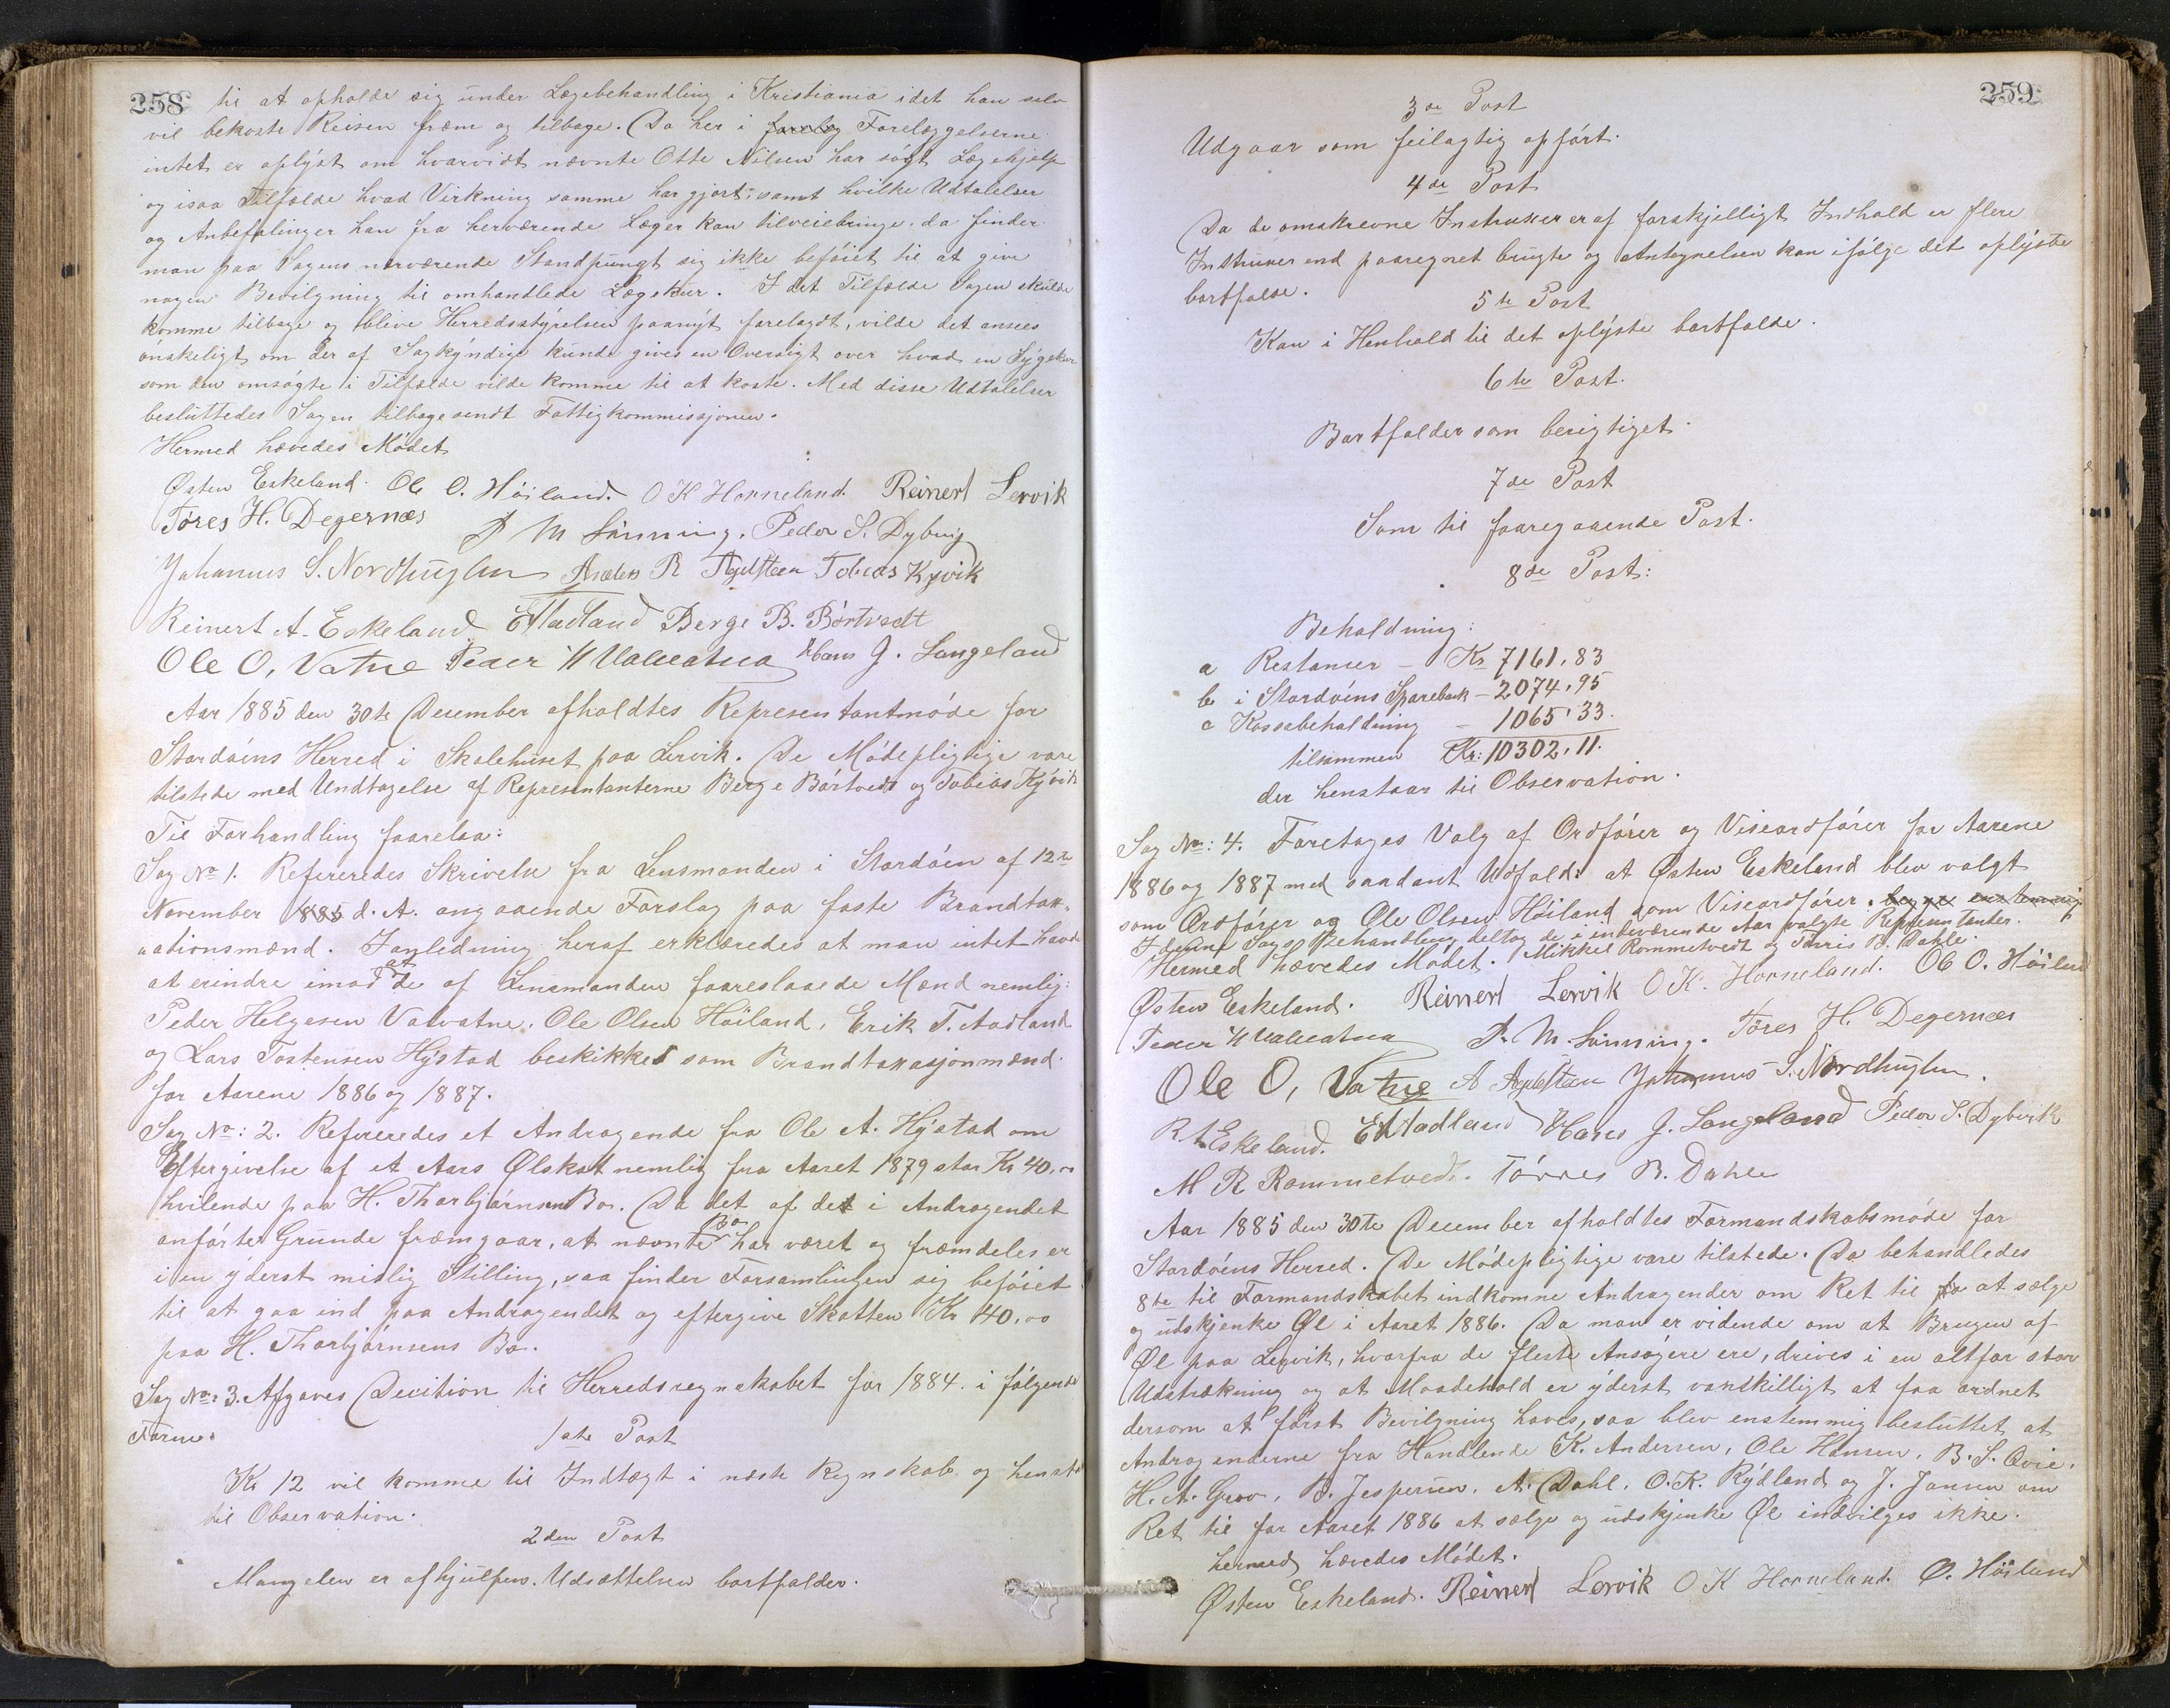 258
til at opholde sig under Lægebehandling i Kristiania idet han selv
vil bekoste Reisen frem og tilbage. Da her i Forelæggelserne
intet er oplyst om hvorvidt nævnte Otte Nilsen har søgt Lægehjelp
og isaa Tilfælde hvad Virkning samme har gjort, samt hvilke Udtalelser
og Anbefalinger han fra herværende Læger kan tilveiebringe, da finder
man paa Sagens nærværende Standpungt sig ikke beføiet til at give
nogen Bevilgning til omhandlede Lægekur. I det Tilfælde Sagen skulde
komme tilbage og blive Herredsstyrelsen paanyt forelagdt, vilde det ansees
ønskeligt om der af Sagkyndige kunde gives en Oversigt over hvad en Sygekur
som den omsøgte i Tilfælde vilde komme til at koste. Med disse Udtalelser
besluttedes Sagen tilbagesendt Fattigkommissjonen.
Hermed hævedes Mødet
Østen Eskeland. Ole O. Höiland. O K Horneland. Reinert Lervik
Tøres H. Degernæs P M Sønning. Peder S. Dybvig
Johannus S. Nordhuglen Anders R Agdesteen Tobias Kyvik
Reinert A. Eskeland E T Aadland Berge B. Børtvedt
Ole O, Vatne Peder H Valvatna Hans J. Langeland
Aar 1885 den 30te December afholdtes Representantmøde for
Stordøens Herred i Skolehuset paa Lervik. De Mødepligtige vare
tilstede med Undtagelse af Representanterne Berge Børtvedt og Tobias Kyvik
Til Forhandling foarelaa:
Sag No 1. Refereredes Skrivelse fra Lensmanden i Stordøen af 12te
November 1885 d. A. angaaende Forslag paa faste Brandtax-
ationsmænd. I anledning heraf erklæredes at man intet havde
at erindre imod at de af Lensmanden foareslaaede Mænd nemlig:
Peder Helgesen Valvatne, Ole Olsen Höiland, Erik T. Aadland
og Lars Tostensen Hystad beskikkes som Brandtaxasjonmænd
for Aarene 1886 og 1887.
Sag No: 2. Refereredes et Andragende fra Ole A. Hystad om
Eftergivelse af et Aars Ølskat nemlig fra Aaret 1879 stor Kr 40,00
hvilende paa H. Thorbjørnsen Bo. Da det af det i Andragendet
anførte Grunde fræmgaar, at nævnte Bo har været og fræmdeles er
i en yderst mislig Stilling, saa finder Forsamlingen sig beføiet
til at gaa ind paa Andragendet og eftergive Skatten Kr 40,00
paa H. Thorbjørnsens Bo.
Sag No: 3. Afgaves Decition til Herredsregnskabet for 1884. i følgende
Form.
1ste Post
Kr 12 vil komme til Indtægt i næste Regnskab og henstaar
til Observation.
2den Post
Mangelen er afhjulpen. Udsættelsen bortfalder.
259
3de Post
Udgaar som feilagtig opført.
4de Post
Da de omskrevne Instruxer er af forskjelligt Indhold er flere
Instruxer end paaregnet brugte og Antegnelsen kan ifølge det oplyste
bortfalde.
5te Post
Kan i Henhold til det oplyste bortfalde.
6te Post.
Bortfalder som berigtiget.
7de Post
Som til foaregaaende Post.
8de Post:
Beholdning:
a Restancer – Kr 7161,83
b i Stordøens Sparebank – 2074,95
c Kassebeholdning – 1065,33.
tilsammen Kr: 10302,11.
der henstaar til Observation.
Sag No: 4. Foretages Valg af Ordfører og Viseordfører for Aarene
1886 og 1887 med saadant Udfald: at Østen Eskeland blev valgt
som Ordfører og Ole Olsen Höiland som Viseordfører. begge enstemmig
I denne Sags Behandling deltog de i indeværende Aar valgte Representanter.
Hermed hævedes Mødet. Mikkel Rommetvedt og Tørris B. Dahle.
Østen Eskeland. Reinert Lervik O K. Horneland. Ole O. Höiland
Peder H Valvatna P. M. Sønning. Töres H. Degernæs
Ole O, Vatne A Agdesteen Johannus S. Nordhuglen.
R. A Eskeland. E T Aadland Hans J. Langeland Peder S. Dybvik
M R Rommetvedt. Tørres B. Dahle
Aar 1885 den 30te December afholdtes Formandskabsmøde for
Stordøens Herred. De Mødepligtige vare tilstede. Da behandledes
8te til Formandskabet indkomne Andragender om Ret til at sælge
og udskjenke Øl i Aaret 1886. Da man er vidende om at Brugen af
Øl paa Lervik, hvorfra de fleste Ansøgere ere, drives i en altfor stor
Udstrækning og at Maadehold er yderst vanskilligt at faa ordnet
dersom at først Bevilgning haves, saa blev enstemmig besluttet at
Andragenderne fra Handlende K. Andersen, Ole Hansen, B. S. Qvie,
H. A. Grov, B. Jespersen, A. Dahl, O. K. Rydland og J. Jansen om
Ret til for Aaret 1886 at sælge og udskjenke Øl indvilges ikke.
hermed hævedes Mødet.
Østen Eskeland. Reinert Lervik O K Horneland. O. Höiland